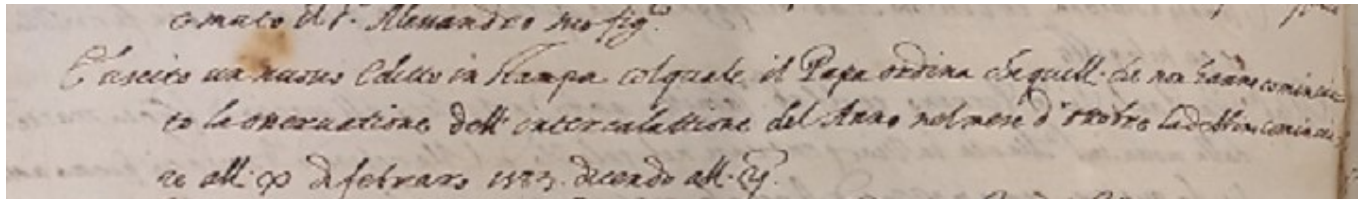 omato il s.r Alessandro suo fig.o
È uscito un nuovo Editto in stampa col quale il Papa ordina che quelli che non hanno comincia
to la osservatione dell' intercalattione del Anno nel mese d' ottobre la debbino comincia
re alli di febraro 1583. dicendo alli